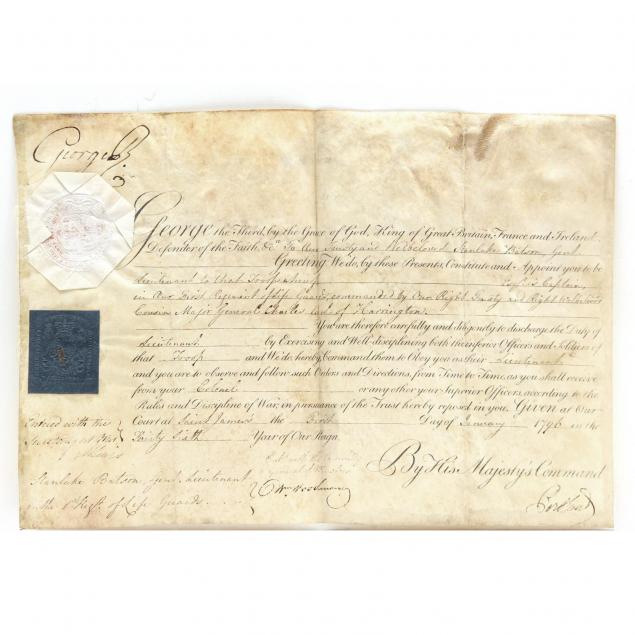 George R.
George the Third, by the Grace of God, King of Great Britain, France and Ireland,
Defender of the Faith, &c. To Our Trusty and Welbeloved Stanlake Batson Gent
Greeting We do, by these Presents, Constitute and Appoint you to be
Lieutenant to that Troop whereof Captain
in Our First Regiment of Life Guards commanded by Our Right Trusty and Right Welbeloved
Cousin Major General Charles Earl of Harrington.
You are therefore carefully and diligently to discharge the Duty of
Lieutenant by Exercising and Well disciplining both the inferior Officers and Soldiers of
that Troop and We do hereby Command them to Obey you as their Lieutenant
and you are to observe and follow such Orders and Directions, from Time to Time, as you shall receive
from your Colonel or any other your Superior Officers according to the
Rules and Discipline of War, in pursuance of the Trust hereby reposed in you. Given at Our
Court at Saint James's the First Day of January 1796 in the
Thirty Sixth Year of Our Reign.
Entered with the
By His Majesty's Command
Portland
Stanlake Batson, Gent. Lieutenant
in the 1st Regt. of Life Guards.